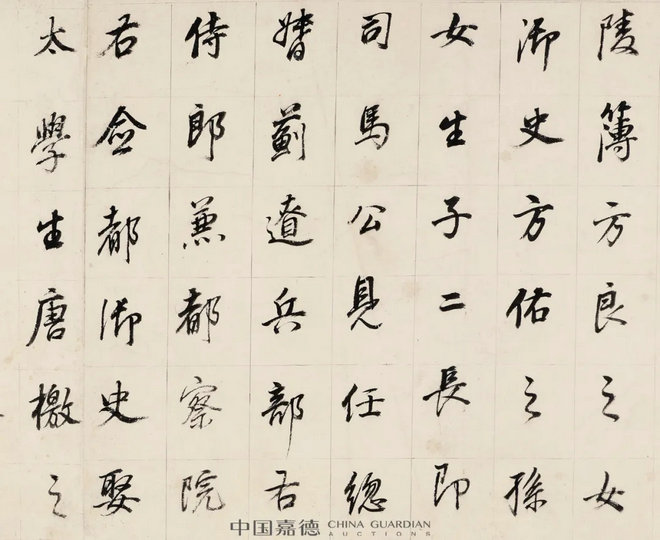 陵簿方良之女
御史方佑之孫
女生子二長即
司馬公見任總
督薊遼兵部右
侍郎兼都察院
右僉都御史娶
太學生唐檄之
中国嘉德 CHINA GUARDIAN
AUCTIONS